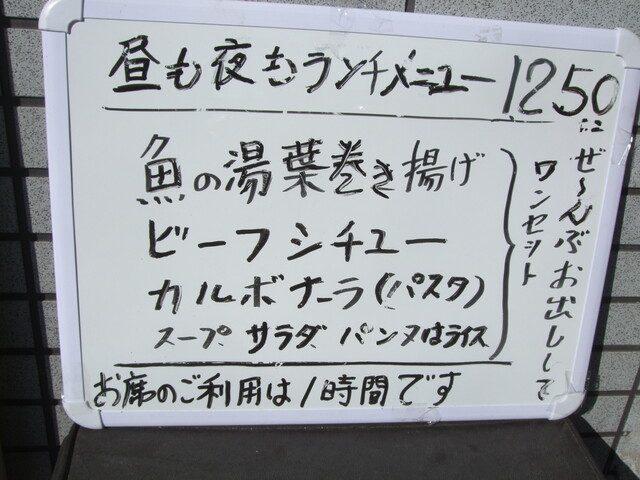 昼も夜もランチメニュー 1250
魚の湯葉巻き揚げ
ビーフシチュー
カルボナーラ(パスタ)
スープ サラダ パンヌはライス
ぜ〜んぶお出しして
ワンセット
お席のご利用は1時間です